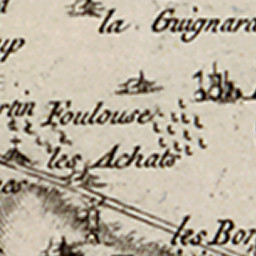 la Guignard
up
rtin Foulouse
les Achats
les Bor